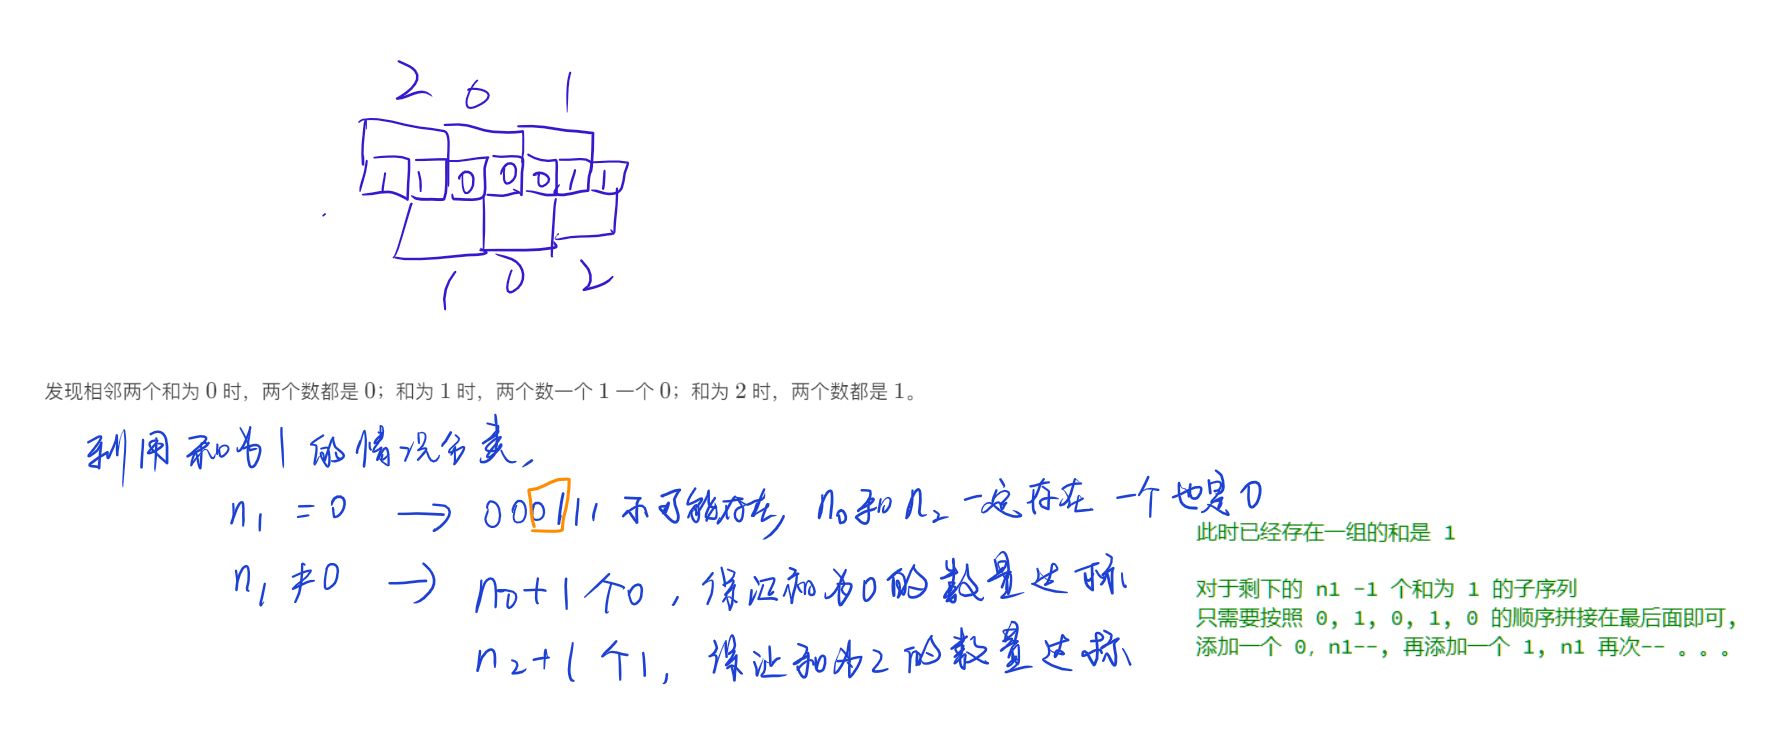 2 0 1
1 1 0 0 0 1 1
1 0 2
发现相邻两个和为 0 时，两个数都是 0；和为 1 时，两个数一个 1 一个 0；和为 2 时，两个数都是 1。
利用和为1的情况分类，
n₁ = 0 → 000111 不可能存在，n₀和n₂一定存在一个也是0
此时已经存在一组的和是 1
n₁ ≠ 0 → n₀+1个0，保证和为0的数量达标
n₂+1个1，保证和为2的数量达标
对于剩下的 n1 -1 个和为 1 的子序列
只需要按照 0, 1, 0, 1, 0 的顺序拼接在最后面即可，
添加一个 0, n1--, 再添加一个 1, n1 再次-- 。。。